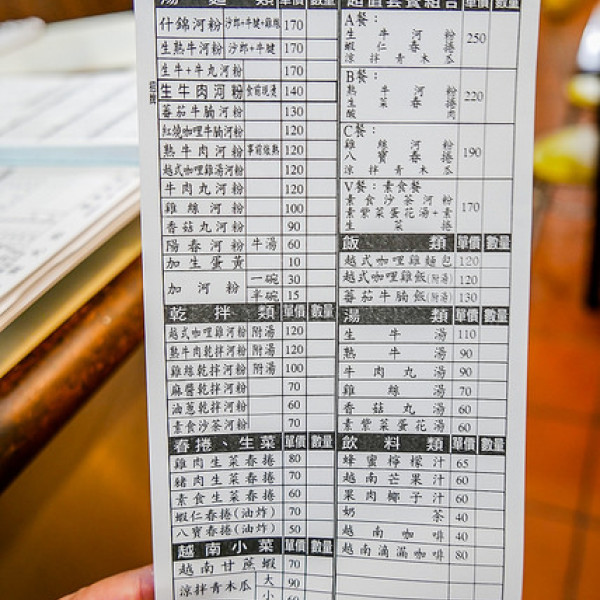 湯麵類 單價 數量
什錦河粉 沙郎+牛腱+雞絲 170
生熟牛河粉 沙郎+牛腱 170
生牛+牛丸河粉 170
招牌 生牛肉河粉 食前現燙 140
蕃茄牛腩河粉 130
紅燒咖哩牛腩河粉 120
熟牛肉河粉 事前燉熟 120
越式咖哩雞湯河粉 120
牛肉丸河粉 120
雞絲河粉 100
香菇丸河粉 90
陽春河粉 牛湯 60
加生蛋黃 10
加河粉 一碗 30
半碗 15
乾拌類 單價 數量
越式咖哩雞河粉 附湯 120
熟牛肉乾拌河粉 附湯 120
雞絲乾拌河粉 附湯 100
麻醬乾拌河粉 70
油蔥乾拌河粉 60
素食沙茶河粉 70
春捲、生菜 單價 數量
雞肉生菜春捲 80
豬肉生菜春捲 70
素食生菜春捲 60
蝦仁春捲(油炸) 70
八寶春捲(油炸) 50
越南小菜 單價 數量
越南甘蔗蝦 70
涼拌青木瓜 大 90
小 60
超值套餐組合 單價 數量
A餐:
生牛河粉
蝦仁春捲
涼拌青木瓜
250
B餐:
熟牛河粉
生菜春捲
酸肉
220
C餐:
雞絲河粉
八寶春捲
涼拌青木瓜
190
V餐:素食餐
素食沙茶河粉
素紫菜蛋花湯+素
生菜捲
170
飯類 單價 數量
越式咖哩雞麵包 120
越式咖哩雞飯(附湯) 120
蕃茄牛腩飯(附湯) 130
湯類 單價 數量
生牛湯 110
熟牛湯 90
牛肉丸湯 90
雞絲湯 70
香菇丸湯 60
素紫菜蛋花湯 60
飲料類 單價 數量
蜂蜜檸檬汁 65
越南芒果汁 60
果肉椰子汁 60
奶茶 40
越南咖啡 40
越南滴漏咖啡 80